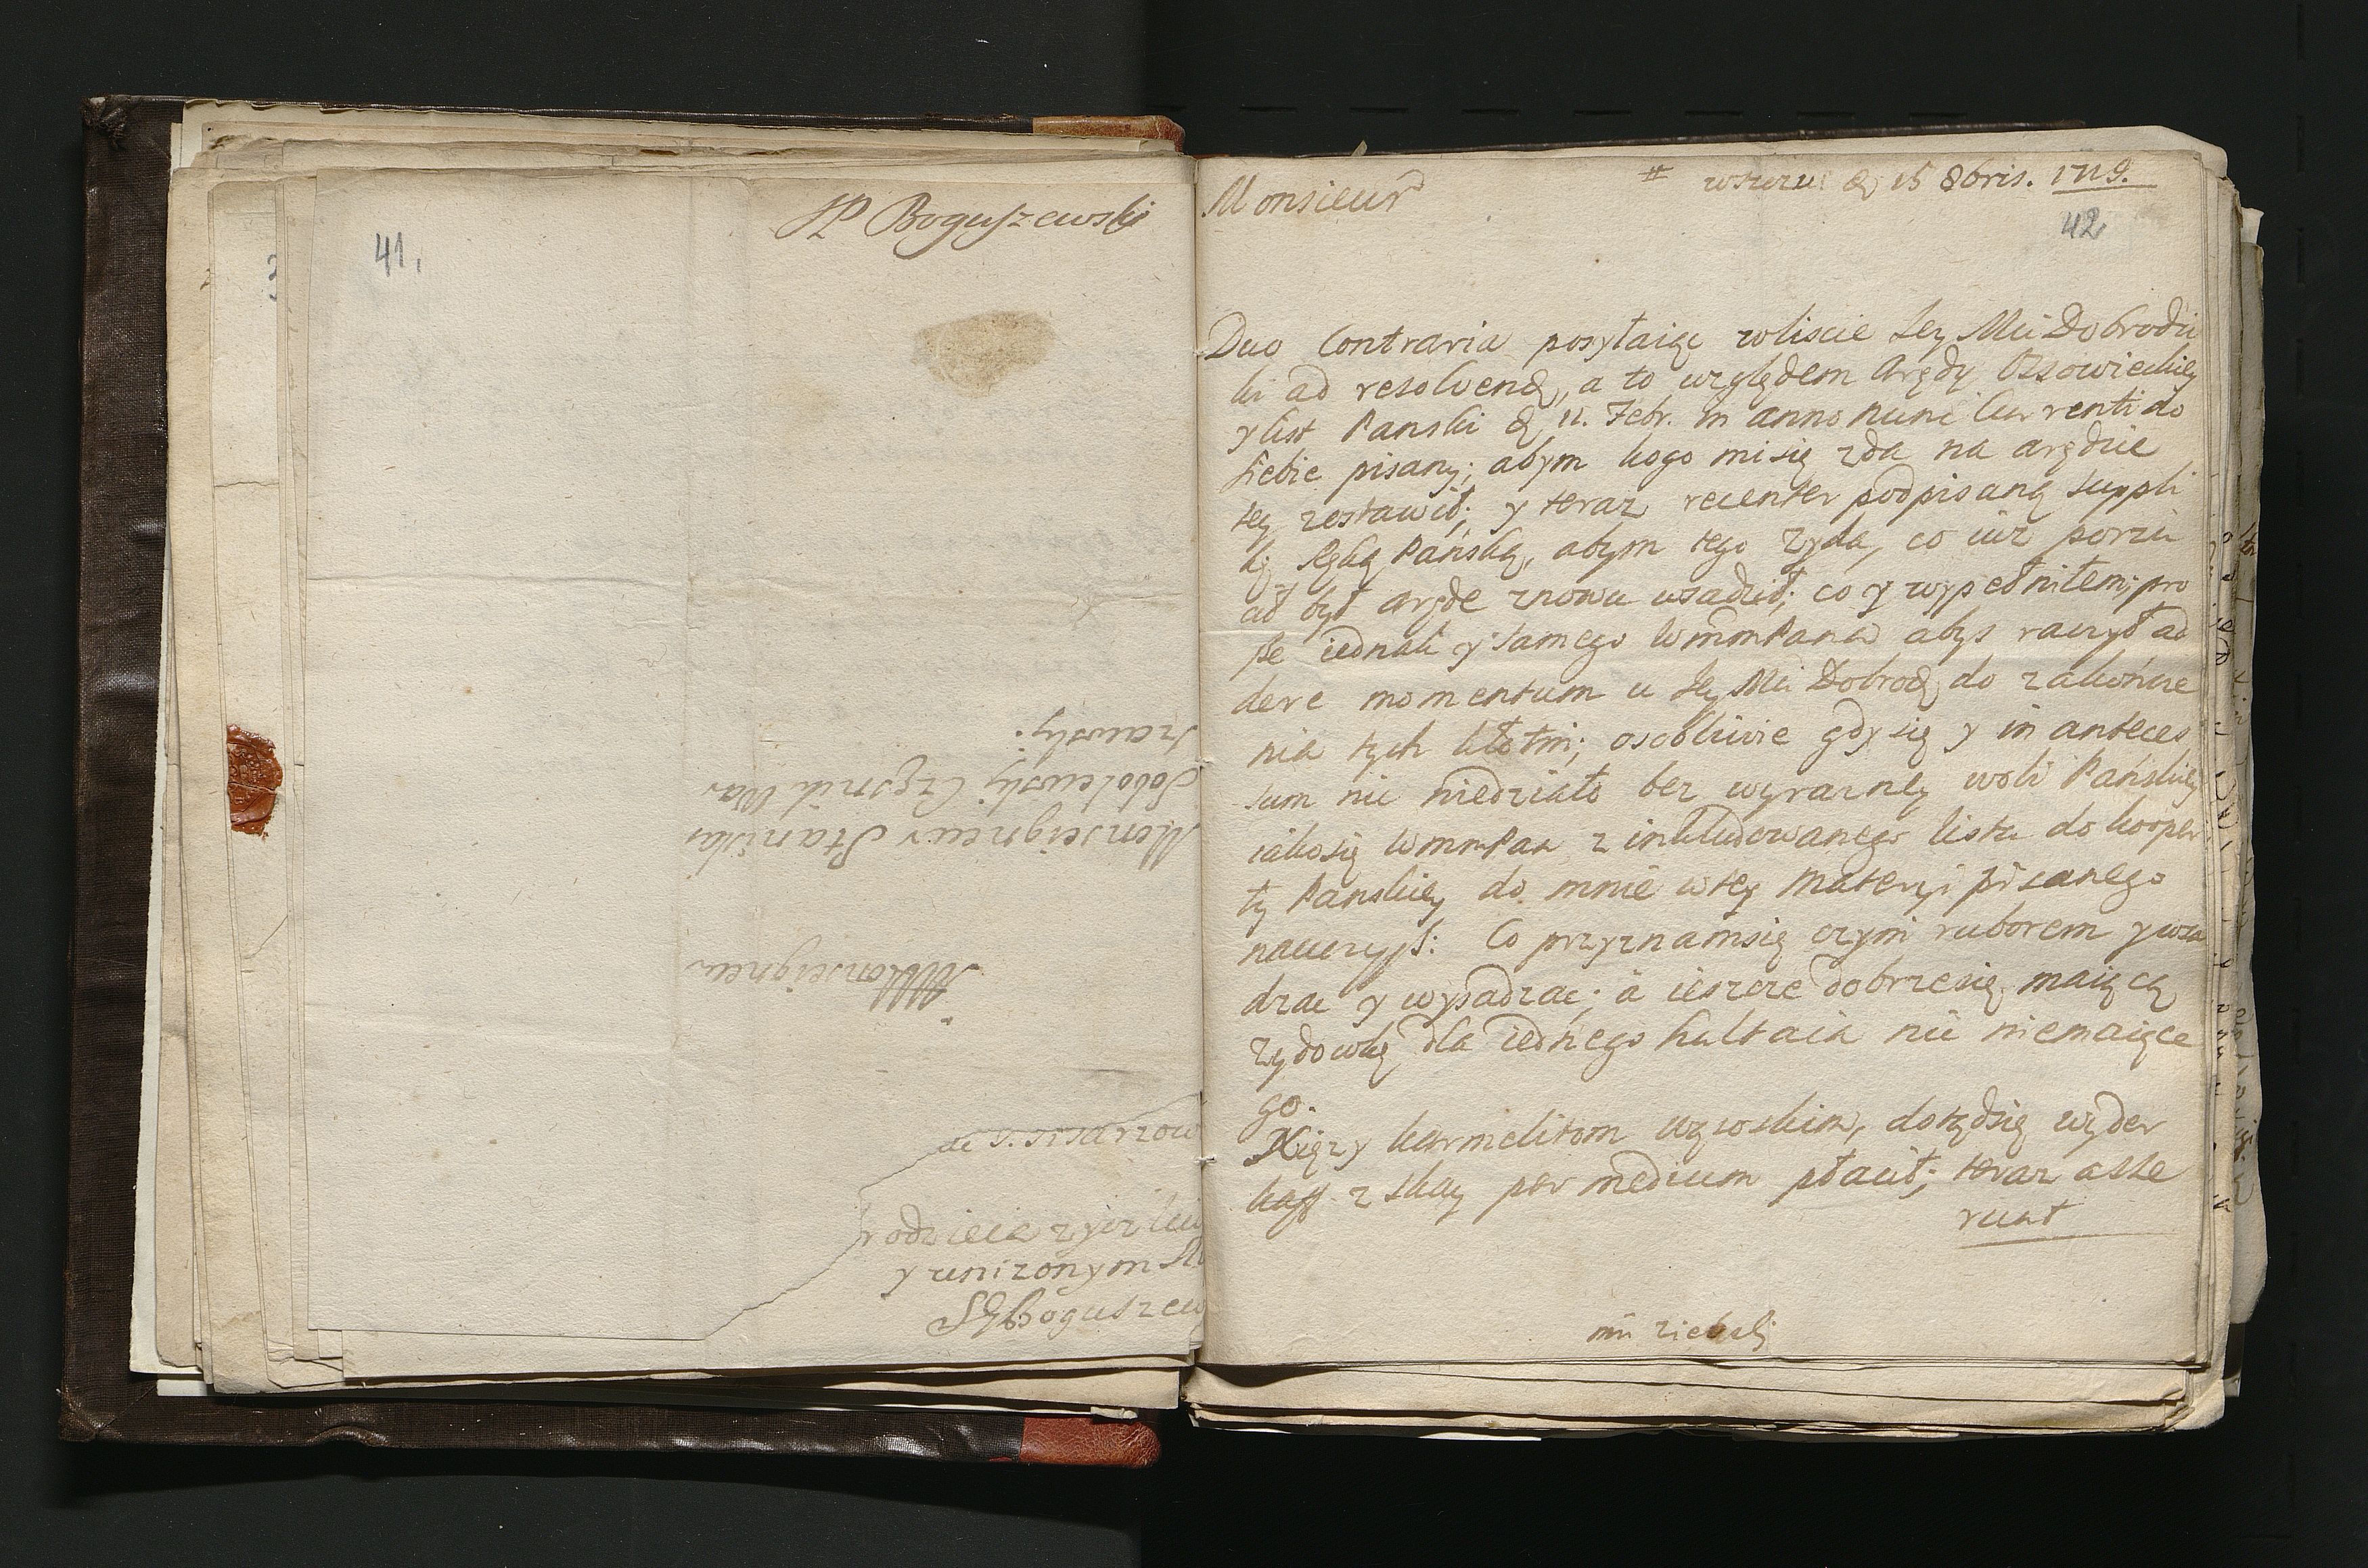 JP Boguszewski
41.
Monseigneur
Monseigneur Stanislas
Sobolewski Czesnik War
szawski.
rodzieia zyczliw
y unizonym
Boguszew
Monsieur
15 8bris. 1719.
42
Duo Contraria posyłaiąc wliscie Iey Mci Dobrodzi
ki ad resolvend, a to względem Arędy Ossowieckiey
y list Panski d. 11. 7br. in anno nunc Currenti do
siebie pisany; abym kogo mi się zda na arędzie
tey zostawił; y teraz recenter podpisaną suppli
kę Ręką Pańską, abym tego Zyda, co iuz porzu
cił był arędę znowu wsadził; co y wypełniłem; pro
szę iednak y samego WmmPana abys raczył ad
dere momentum u Iey Mci Dobrod. do zakończe
nia tych kłotni; osobliwie gdy się y in anteces
sum nic niedziało bez wyrazney woli Pańskiey
iako się WmmPan z inkludowanego listu do koper
ty Panskiey do mnie wtey materyi pisanego
nauczysz: Co przyznam się czyni ruborem y wsa
dzac y wysadzac; a ieszcze dobrze się maiącą
zydowkę dla iednego hultaia nic niemaiące
go.
Xięzy karmelitom wąsoskim, dotąd się wyder
kaff z skay per medium płacił; teraz asse
runt